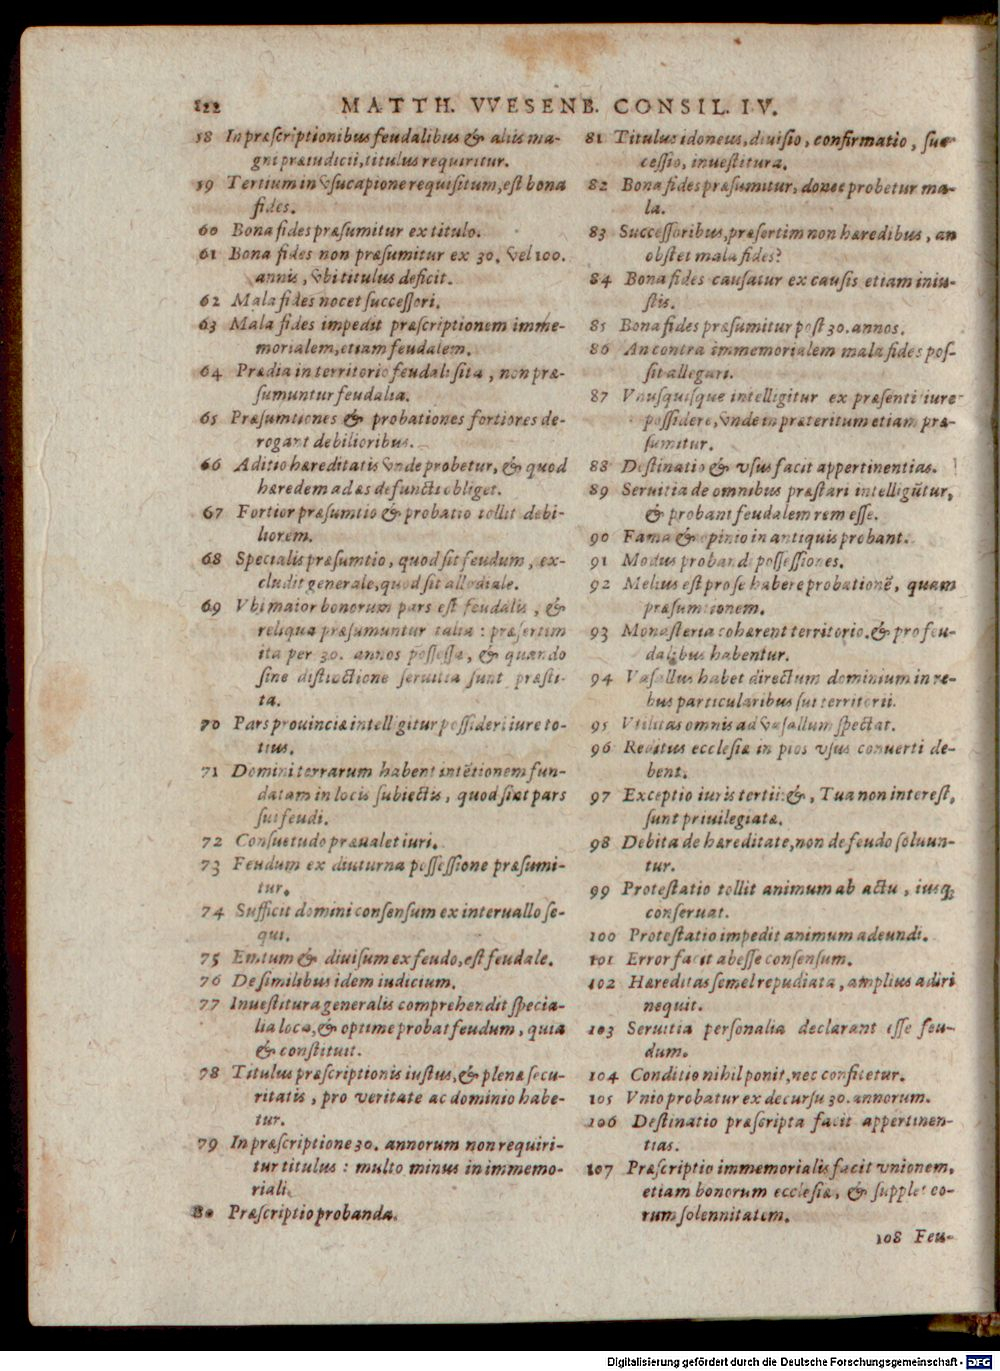 122 MATTH. VVESENB. CONSIL. IV.
58 In præscriptionibus feudalibus & aliis ma-
gni præiudicii, titulus requiritur.
59 Tertium in vsucapione requisitum, est bona
fides.
60 Bona fides præsumitur ex titulo.
61 Bona fides non præsumitur ex 30. vel 100.
annis, vbi titulus deficit.
62 Mala fides nocet successori.
63 Mala fides impedit præscriptionem imme-
morialem, etiam feudalem.
64 Prædia in territorio feudali sita, non præ-
sumuntur feudalia.
65 Præsumtiones & probationes fortiores de-
rogant debilioribus.
66 Aditio hæreditatis vnde probetur, & quod
hæredem ad æs defuncti obliget.
67 Fortior præsumtio & probatio tollit debi-
liorem.
68 Specialis præsumtio, quod sit feudum, ex-
cludit generale, quod sit allodiale.
69 Vbi maior bonorum pars est feudalis, &
reliqua præsumuntur talia: præsertim
ita per 30. annos possessa, & quando
sine distinctione seruitia sunt præsti-
ta.
70 Pars prouinciæ intelligitur possideri iure to-
tius.
71 Domini terrarum habent intẽtionem fun-
datam in locis subiectis, quod sint pars
sui feudi.
72 Consuetudo præualet iuri.
73 Feudum ex diuturna possessione præsumi-
tur.
74 Sufficit domini consensum ex interuallo se-
qui.
75 Emtum & diuisum ex feudo, est feudale.
76 De similibus idem iudicium.
77 Inuestitura generalis comprehendit specia-
lia loca, & optime probat feudum, quia
& constituit.
78 Titulus præscriptionis iustus, & plenæ secu-
ritatis, pro veritate ac dominio habe-
tur.
79 In præscriptione 30. annorum non requiri-
tur titulus: multo minus in immemo-
riali.
80 Præscriptio probanda.
81 Titulus idoneus, diuisio, confirmatio, suc-
cessio, inuestitura.
82 Bona fides præsumitur, donec probetur ma-
la.
83 Successoribus, præsertim non hæredibus, an
obstet mala fides?
84 Bona fides causatur ex causis etiam iniu-
stis.
85 Bona fides præsumitur post 30. annos.
86 An contra immemorialem mala fides pos-
sit allegari.
87 Vnusquisque intelligitur ex præsenti iure
possidere, vnde in præteritum etiam præ-
sumitur.
88 Destinatio & vsus facit appertinentias.
89 Seruitia de omnibus præstari intelligũtur,
& probant feudalem rem esse.
90 Fama & opinio in antiquis probant.
91 Modus probandi possessiones.
92 Melius est pro se habere probationẽ, quam
præsumtionem.
93 Monasteria cohærent territorio, & pro feu-
dalibus habentur.
94 Vasallus habet directum dominium in re-
bus particularibus sui territorii.
95 Vtilitas omnis ad vasallum spectat.
96 Reditus ecclesiæ in pios vsus conuerti de-
bent.
97 Exceptio iuris tertii: &, Tua non interest,
sunt priuilegiatæ.
98 Debita de hæreditate, non de feudo soluun-
tur.
99 Protestatio tollit animum ab actu, iusq;
conseruat.
100 Protestatio impedit animum adeundi.
101 Error facit abesse consensum.
102 Hæreditas semel repudiata, amplius adiri
nequit.
103 Seruitia personalia declarant esse feu-
dum.
104 Conditio nihil ponit, nec confitetur.
105 Vnio probatur ex decursu 30. annorum.
106 Destinatio præscripta facit appertinen-
tias.
107 Præscriptio immemorialis facit vnionem,
etiam bonorum ecclesiæ, & supplet eo-
rum solennitatem.
108 Feu-
Digitalisierung gefördert durch die Deutsche Forschungsgemeinschaft - DFG